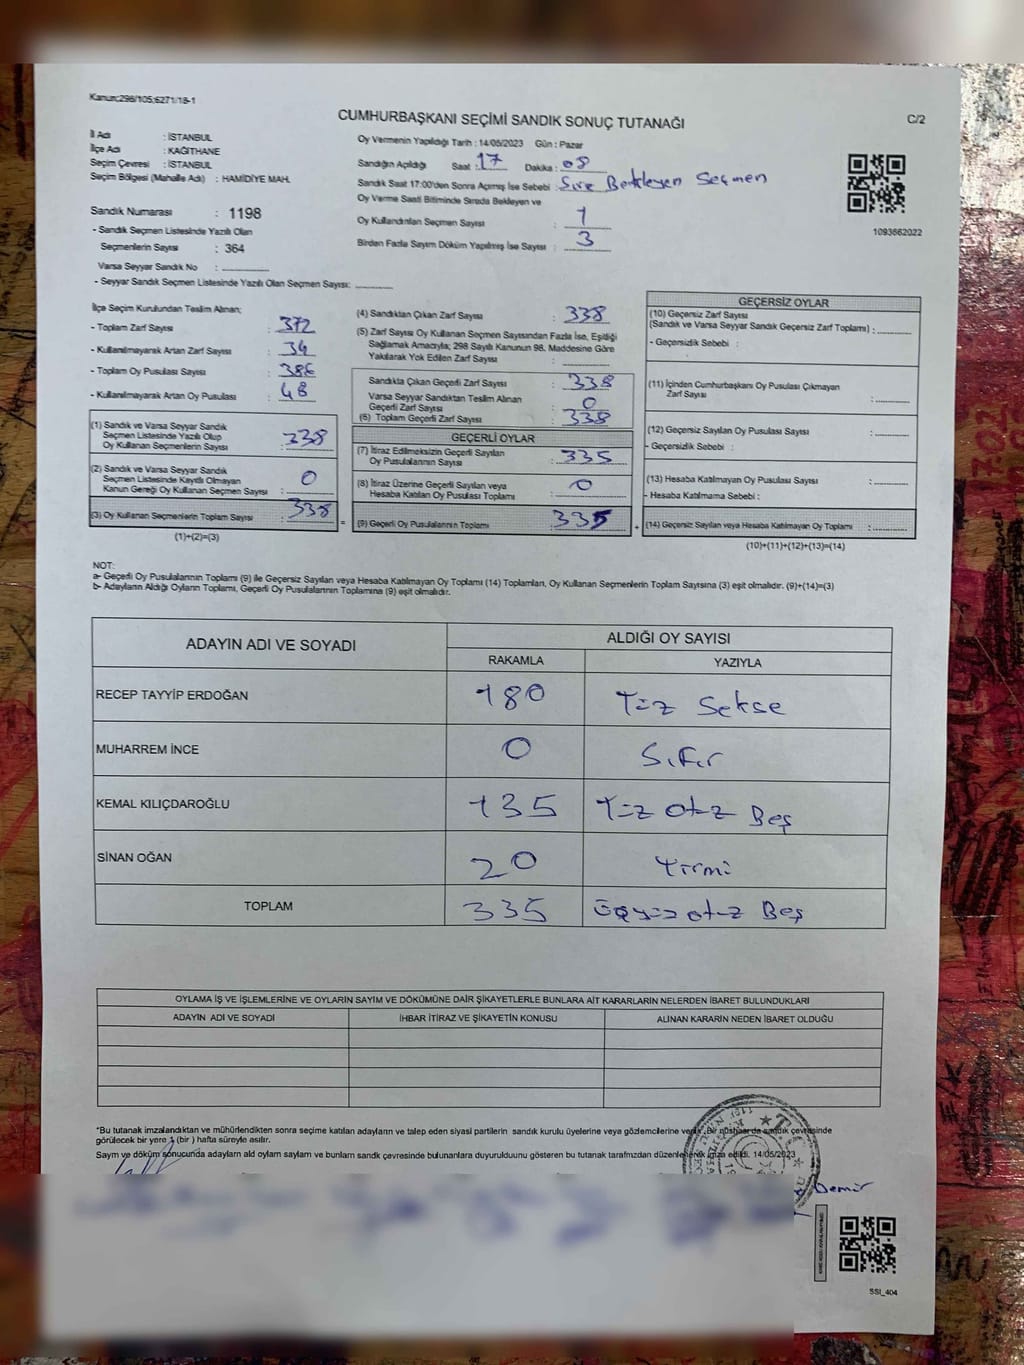 Kanun;298/105;6271/18-1
CUMHURBAŞKANI SEÇİMİ SANDIK SONUÇ TUTANAĞI
C/2
İl Adı : İSTANBUL
İlçe Adı : KAĞITHANE
Seçim Çevresi : İSTANBUL
Seçim Bölgesi (Mahalle Adı) : HAMİDİYE MAH.
Sandık Numarası : 1198
- Sandık Seçmen Listesinde Yazılı Olan
Seçmenlerin Sayısı : 364
Varsa Seyyar Sandık No :
- Seyyar Sandık Seçmen Listesinde Yazılı Olan Seçmen Sayısı:
Oy Vermenin Yapıldığı Tarih : 14/05/2023 Gün : Pazar
Sandığın Açıldığı Saat : 17 Dakika : 08
Sandık Saat 17:00'den Sonra Açılmış İse Sebebi : Sıra Bekleyen Seçmen
Oy Verme Saati Bitiminde Sırada Bekleyen ve
Oy Kullandırılan Seçmen Sayısı : 1
Birden Fazla Sayım Döküm Yapılmış İse Sayısı : 3
1093662022
İlçe Seçim Kurulundan Teslim Alınan;
- Toplam Zarf Sayısı : 372
- Kullanılmayarak Artan Zarf Sayısı : 34
- Toplam Oy Pusulası Sayısı : 386
- Kullanılmayarak Artan Oy Pusulası : 48
(1) Sandık ve Varsa Seyyar Sandık
Seçmen Listesinde Yazılı Olup
Oy Kullanan Seçmenlerin Sayısı : 338
(2) Sandık ve Varsa Seyyar Sandık
Seçmen Listesinde Kayıtlı Olmayan
Kanun Gereği Oy Kullanan Seçmen Sayısı : 0
(3) Oy Kullanan Seçmenlerin Toplam Sayısı : 338
(1)+(2)=(3)
=
(4) Sandıktan Çıkan Zarf Sayısı : 338
(5) Zarf Sayısı Oy Kullanan Seçmen Sayısından Fazla İse, Eşitliği
Sağlamak Amacıyla; 298 Sayılı Kanunun 98. Maddesine Göre
Yakılarak Yok Edilen Zarf Sayısı :
Sandıkta Çıkan Geçerli Zarf Sayısı : 338
Varsa Seyyar Sandıktan Teslim Alınan
Geçerli Zarf Sayısı : 0
(6) Toplam Geçerli Zarf Sayısı : 338
GEÇERLİ OYLAR
(7) İtiraz Edilmeksizin Geçerli Sayılan
Oy Pusulalarının Sayısı : 335
(8) İtiraz Üzerine Geçerli Sayılan veya
Hesaba Katılan Oy Pusulası Toplamı : 0
(9) Geçerli Oy Pusulalarının Toplamı : 335
+
GEÇERSİZ OYLAR
(10) Geçersiz Zarf Sayısı
(Sandık ve Varsa Seyyar Sandık Geçersiz Zarf Toplamı) :
- Geçersizlik Sebebi :
(11) İçinden Cumhurbaşkanı Oy Pusulası Çıkmayan
Zarf Sayısı :
(12) Geçersiz Sayılan Oy Pusulası Sayısı :
- Geçersizlik Sebebi :
(13) Hesaba Katılmayan Oy Pusulası Sayısı :
- Hesaba Katılmama Sebebi :
(14) Geçersiz Sayılan veya Hesaba Katılmayan Oy Toplamı :
(10)+(11)+(12)+(13)=(14)
NOT:
a- Geçerli Oy Pusulalarının Toplamı (9) ile Geçersiz Sayılan veya Hesaba Katılmayan Oy Toplamı (14) Toplamları, Oy Kullanan Seçmenlerin Toplam Sayısına (3) eşit olmalıdır. (9)+(14)=(3)
b- Adayların Aldığı Oyların Toplamı, Geçerli Oy Pusulalarının Toplamına (9) eşit olmalıdır.
ADAYIN ADI VE SOYADI
ALDIĞI OY SAYISI
RAKAMLA YAZIYLA
RECEP TAYYİP ERDOĞAN 180 Yüz Sekse
MUHARREM İNCE 0 Sıfır
KEMAL KILIÇDAROĞLU 135 Yüz otuz Beş
SİNAN OĞAN 20 Yirmi
TOPLAM 335 üçyüz otuz Beş
OYLAMA İŞ VE İŞLEMLERİNE VE OYLARIN SAYIM VE DÖKÜMÜNE DAİR ŞİKAYETLERLE BUNLARA AİT KARARLARIN NELERDEN İBARET BULUNDUKLARI
ADAYIN ADI VE SOYADI İHBAR İTİRAZ VE ŞİKAYETİN KONUSU ALINAN KARARIN NEDEN İBARET OLDUĞU
*Bu tutanak imzalandıktan ve mühürlendikten sonra seçime katılan adayların ve talep eden siyasi partilerin sandık kurulu üyelerine veya gözlemcilerine verilir. Bir nüshası da sandık çevresinde
görülecek bir yere 1 (bir ) hafta süreyle asılır.
Sayım ve döküm sonucunda adayların ald oyların sayların ve sandık çevresinde bulunanlara duyurulduunu gösteren bu tutanak tarafmzdan düzenlenerek imza edildi. 14/05/2023
Demir
SSI_404